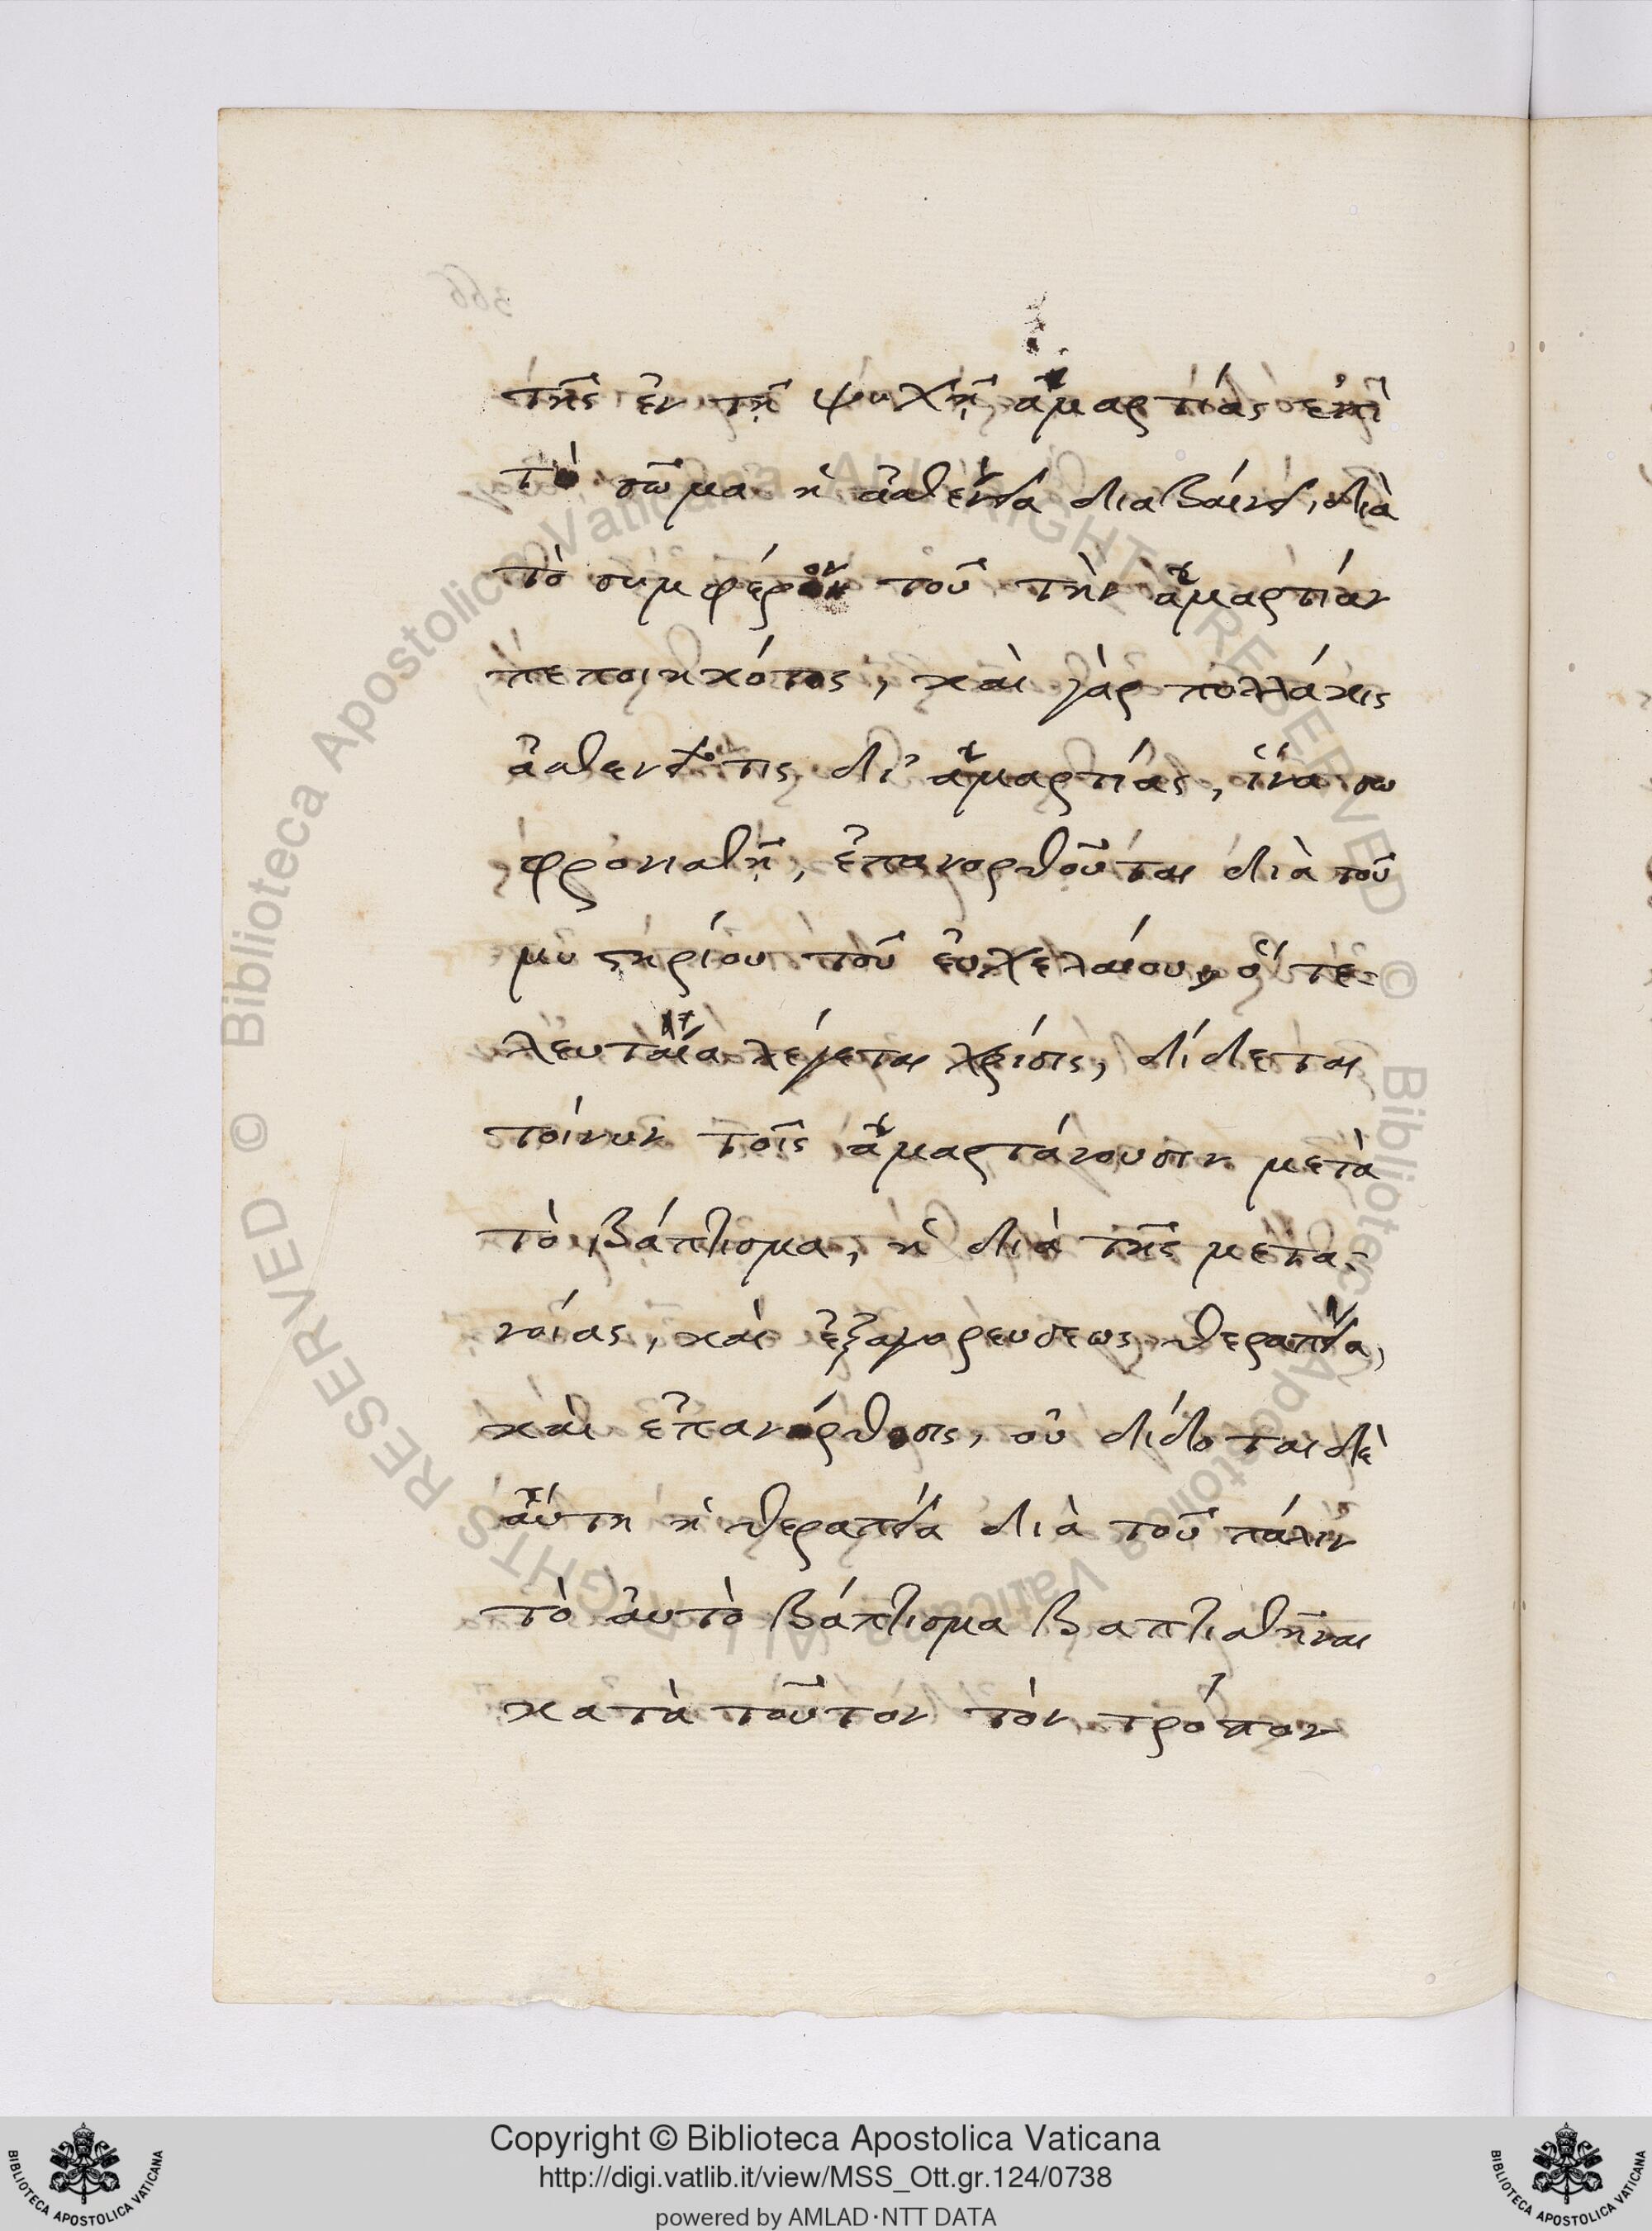 τῆς ἐν τῇ ψυχῇ ἁμαρτίας ἐπὶ
τὸ σῶμα ἡ ἀσθένεια διαβαίνει, διὰ
τὸ συμφέρον τοῦ τὴν ἁμαρτίαν
πεποιηκότος, καὶ γὰρ πολλάκις
ἀσθενεῖ τις δι' ἁμαρτίας, ἵνα σω
φρονισθῇ, ἐπανορθοῦται διὰ τοῦ
μυστηρίου τοῦ εὐχελαίου, ὃ τε-
λευταία λέγεται χρίσις, δίδεται
τοίνυν τοῖς ἁμαρτάνουσιν μετὰ
τὸ βάπτισμα, ἡ διὰ τῆς μετα-
νοίας, καὶ ἐξαγορεύσεως θεραπεία,
καὶ ἐπανόρθωσις, οὐ δίδοται δὲ
αὕτη ἡ θεραπεία διὰ τοῦ πάλιν
τὸ αὐτὸ βάπτισμα βαπτισθῆναι
κατὰ τοῦτον τὸν τρόπον
Copyright © Biblioteca Apostolica Vaticana
http://digi.vatlib.it/view/MSS_Ott.gr.124/0738
powered by AMLAD·NTT DATA